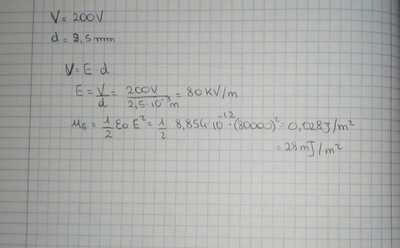 V = 200V
d = 2,5 mm
V = E d
E = V/d = 200V / 2,5·10⁻³ m = 80 KV/m
u_E = 1/2 ε₀ E² = 1/2 8,854·10⁻¹²·(80000)² = 0,028 J/m²
= 28 mJ/m²